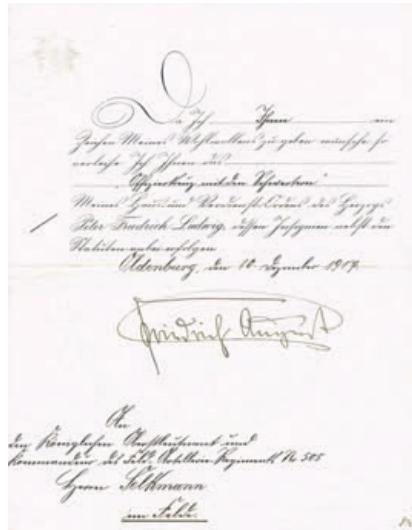 Da Ich Ihnen ein
Zeichen Meines Wohlwollens zu geben wünsche so
verleihe Ich Ihnen das
„Offizierkreuz mit den Schwertern“
Meines Haus und Verdienst-Ordens des Herzogs
Peter Friedrich Ludwig, dessen Insignien nebst den
Statuten anbei erfolgen.
Oldenburg, den 10. Dezember 1917.
Friedrich August
An
den Königlichen Oberstleutnant und
Kommandeur des Feld-Artillerie-Regiments No 505
Herrn
im Felde.